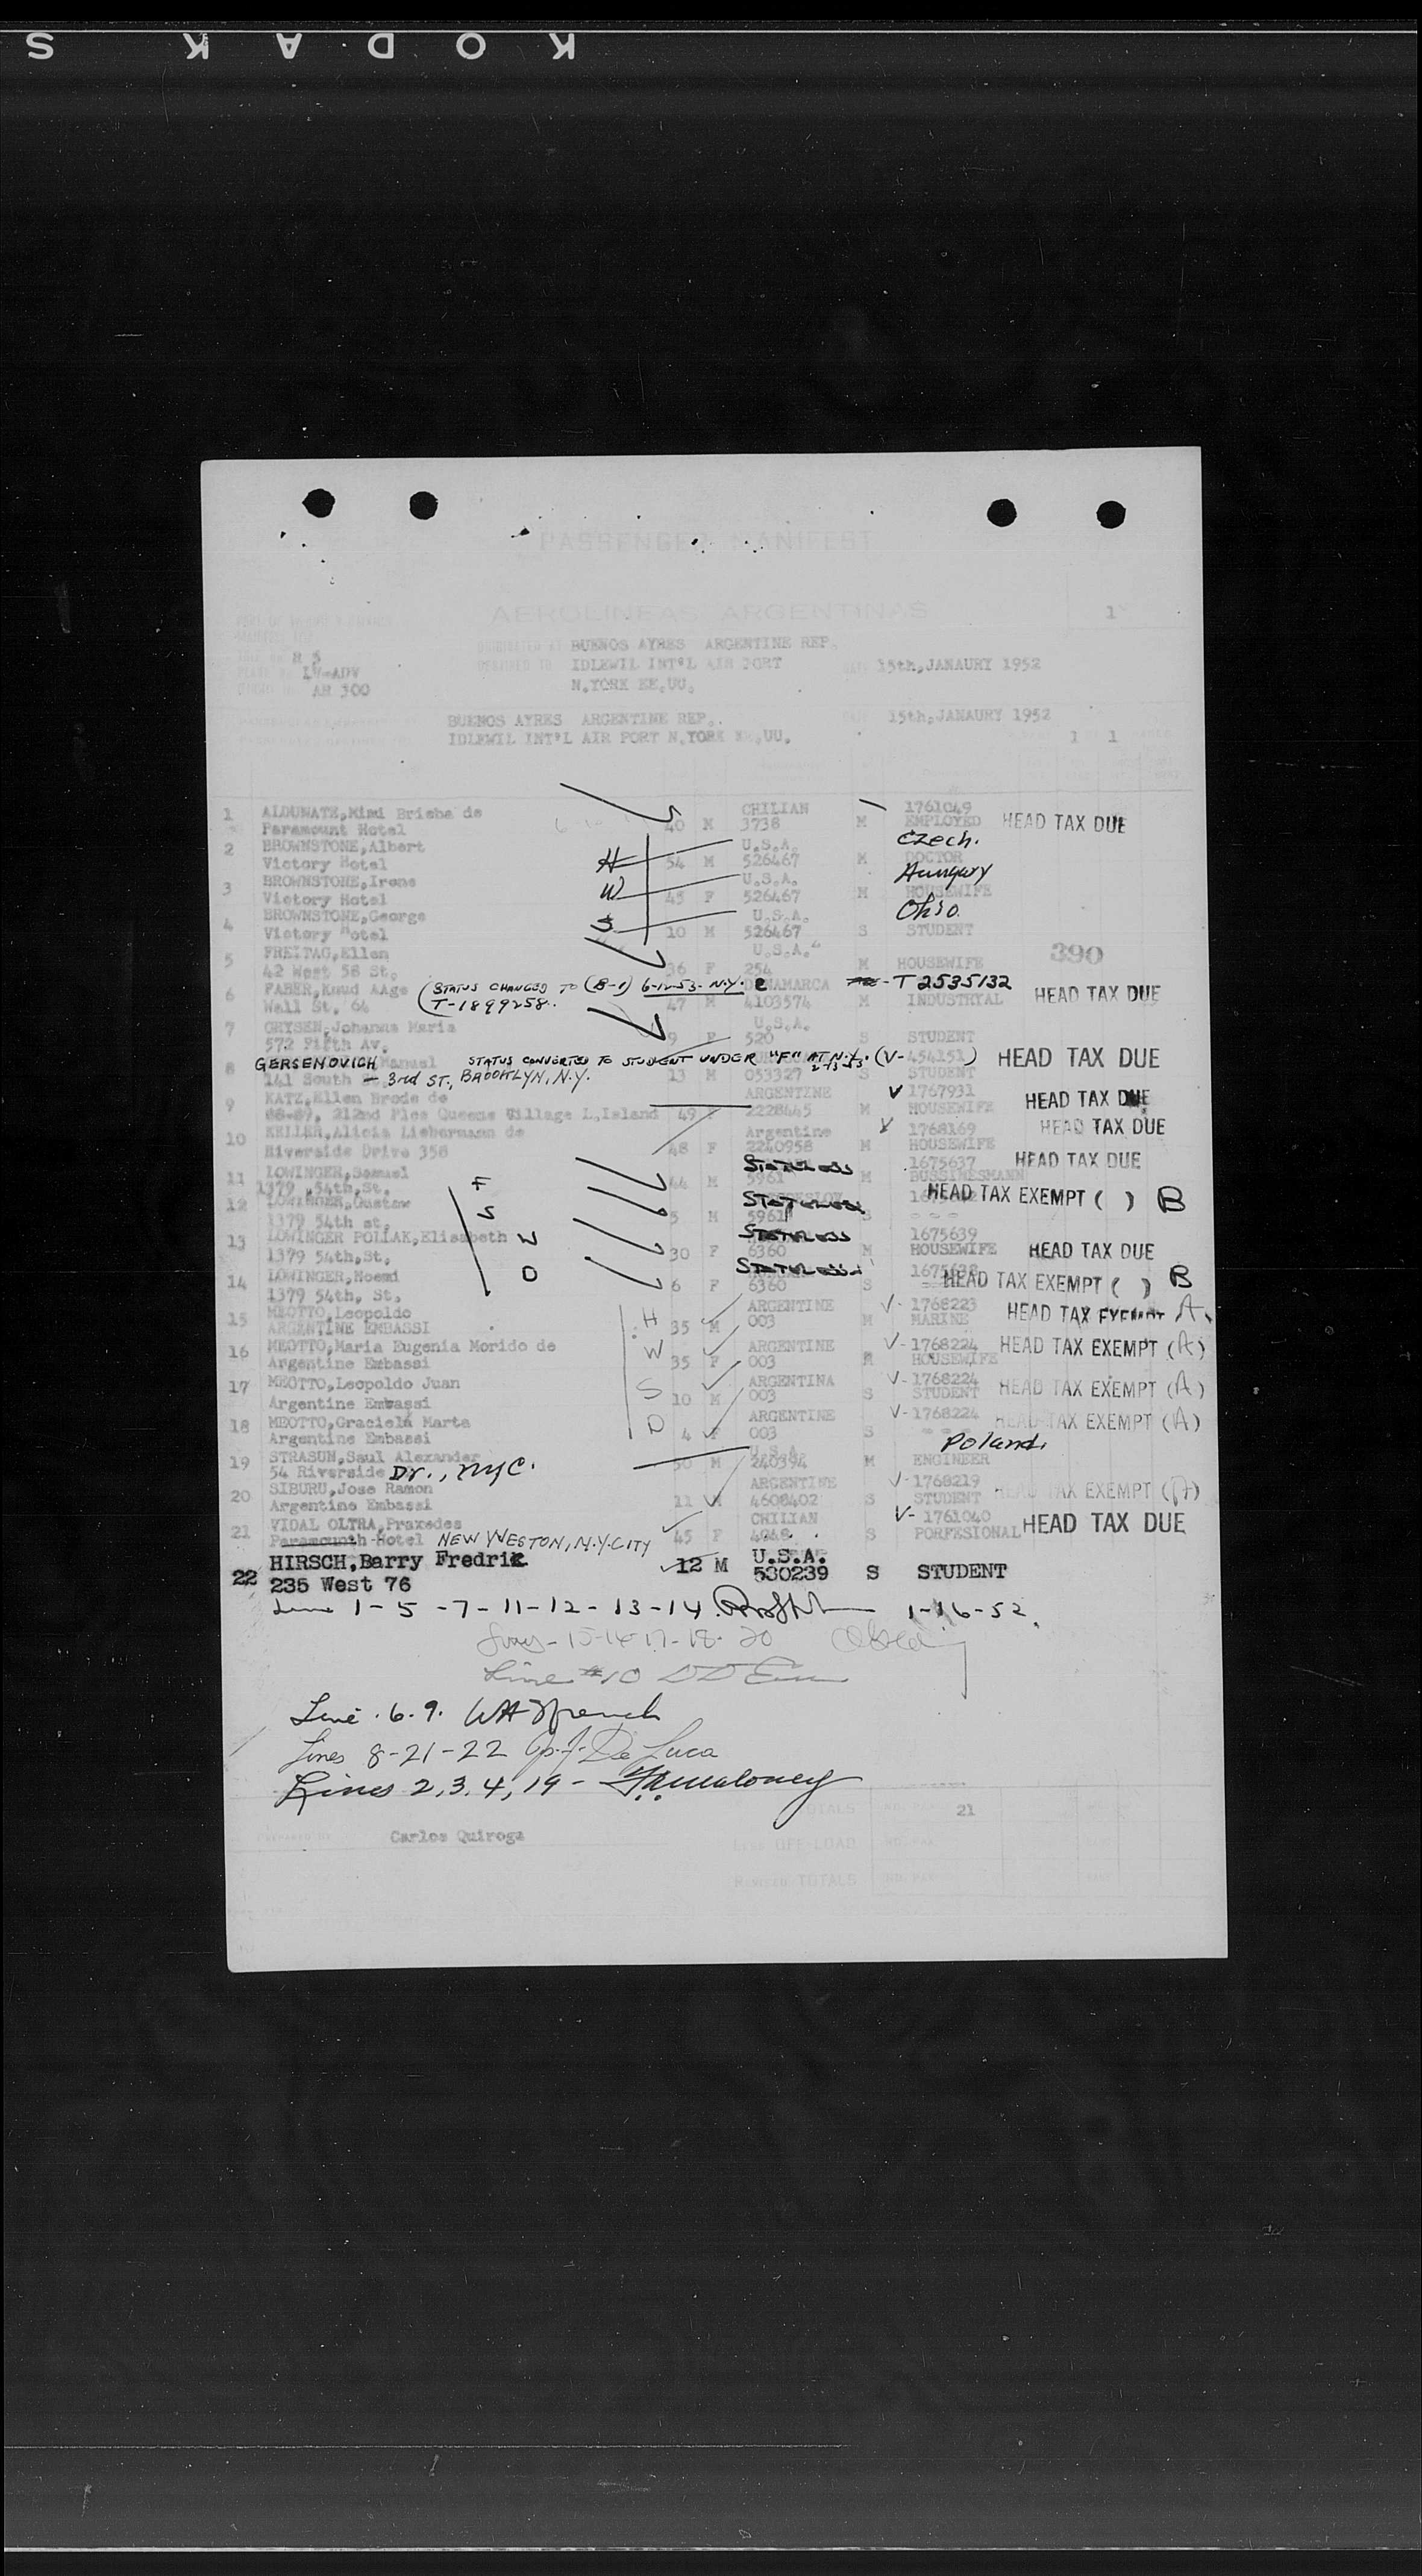 KODAK S
PASSENGER MANIFEST
AEROLINEAS ARGENTINAS 1
ORIGINATED AT BUENOS AYRES ARGENTINE REP.
R 5 DESTINED TO IDLEWIL INT'L AIR PORT DATE 15th,JANAURY 1952
LV-ADV
AR 300 N.YORK EE.UU.
BUENOS AYRES ARGENTINE REP.. DATE 15th,JANAURY 1952
IDLEWIL INT'L AIR PORT N.YORK EE.UU. 1 1
1 ALDUNATE,Mimi Brieba de CHILIAN 1761049
Paramount Hotel 40 M 3738 M EMPLOYED HEAD TAX DUE
2 BROWNSTONE,Albert U.S.A. Czech.
Victory Hotel H 54 M 526467 M DOCTOR
3 BROWNSTONE,Irene U.S.A. Hungary
Victory Hotel W 45 F 526467 M HOUSEWIFE
4 BROWNSTONE,George U.S.A. Ohio
Victory Hotel S 10 M 526467 S STUDENT
5 FREITAG,Ellen U.S.A. 390
42 West 58 St. 36 F 254 M HOUSEWIFE
6 FABER,Knud Aage (STATUS CHANGED TO (B-1) 6-12-53-N.Y. DINAMARCA -T2535132
Wall St. 64 T-1899258. 47 M 4103574 M INDUSTRYAL HEAD TAX DUE
7 GRYSEN,Johanna Maria U.S.A.
572 Fifth Av. 9 F 520 S STUDENT
8 GERSENOVICH Manuel STATUS CONVERTED TO STUDENT UNDER "F" AT N.Y. 2-13-53 (V-454151) HEAD TAX DUE
141 South - 3rd ST., BROOKLYN, N.Y. 13 M 053327 S STUDENT
9 KATZ,Ellen Brode de ARGENTINE V 1767931 HEAD TAX DUE
88-87, 212nd Plce Queens Village L.Island 49 F 2228445 M HOUSEWIFE
10 KELLER,Alicia Liebermann de Argentine V 1768169 HEAD TAX DUE
Riverside Drive 358 48 F 2240958 M HOUSEWIFE
11 LOWINGER,Samuel F STATELESS 1675637 HEAD TAX DUE
1379 ,54th,St. 44 M 5961 M BUSSINESMANN
12 LOWINGER,Gustav S STATELESS HEAD TAX EXEMPT ( ) B
1379 54th st, 5 M 5961 S - - -
13 LOWINGER POLLAK,Elisabeth W STATELESS 1675639
1379 54th,St, 30 F 6360 M HOUSEWIFE HEAD TAX DUE
14 LOWINGER,Noemi D STATELESS 1675638 HEAD TAX EXEMPT ( ) B
1379 54th, St, 6 F 6360 S
15 MEOTTO,Leopoldo H ARGENTINE V- 1768223 HEAD TAX EXEMPT A.
ARGENTINE EMBASSI 35 M 003 M MARINE
16 MEOTTO,Maria Eugenia Morido de W ARGENTINE V-1768224 HEAD TAX EXEMPT (A)
Argentine Embassi 35 F 003 M HOUSEWIFE
17 MEOTTO,Leopoldo Juan S ARGENTINA V-1768224 HEAD TAX EXEMPT (A)
Argentine Embassi 10 M 003 S STUDENT
18 MEOTTO,Graciela Marta D ARGENTINE V-1768224 HEAD TAX EXEMPT (A)
Argentine Embassi 4 F 003 S - - -
19 STRASUN,Saul Alexander U.S.A. Poland.
54 Riverside Dr., NYC. 50 M 240394 M ENGINEER
20 SIBURU,Jose Ramon ARGENTINE V-1768219 HEAD TAX EXEMPT (A)
Argentine Embassi 11 M 4608402 S STUDENT
21 VIDAL OLTRA,Praxedes CHILIAN V- 1761040 HEAD TAX DUE
Paramounth Hotel NEW WESTON, N.Y.CITY 45 F 4048 S PORFESIONAL
22 HIRSCH,Barry Fredric 12 M U.S.A.
235 West 76 530239 S STUDENT
Line 1-5-7-11-12-13-14. 1-16-52.
Lines-15-16 17-18-20
Line #10
Line .6.9. WA French
Lines 8-21-22 P.J. De Luca
Lines 2,3,4,19-
TOTALS NO. PAX 21
PREPARED BY Carlos Quiroga
Less OFF-LOAD NO. PAX
REVISED TOTALS NO. PAX